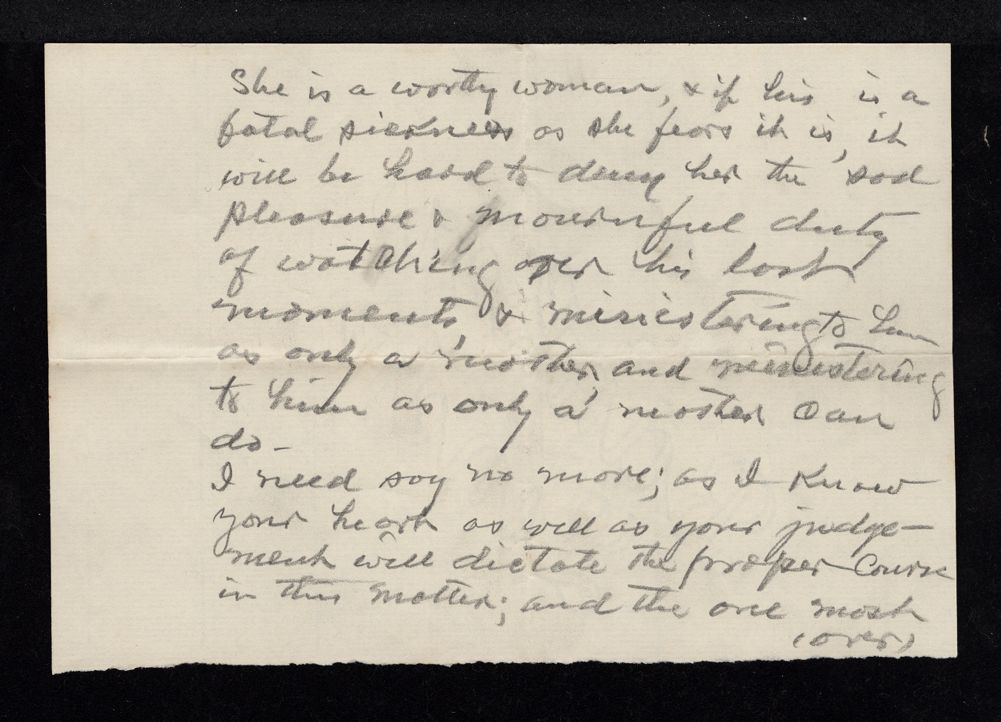 She is a worthy woman, & if his is a
fatal sickness as she fears it is, it
will be hard to deny her the sad
pleasure & mournful duty
of watching over his last
moments, & ministering to him
as only a mother, and ministering
to him as only a mother can
do -
I need say no more; as I know
your heart as well as your judge-
ment will dictate the proper course
in this matter; and the one most
(over)